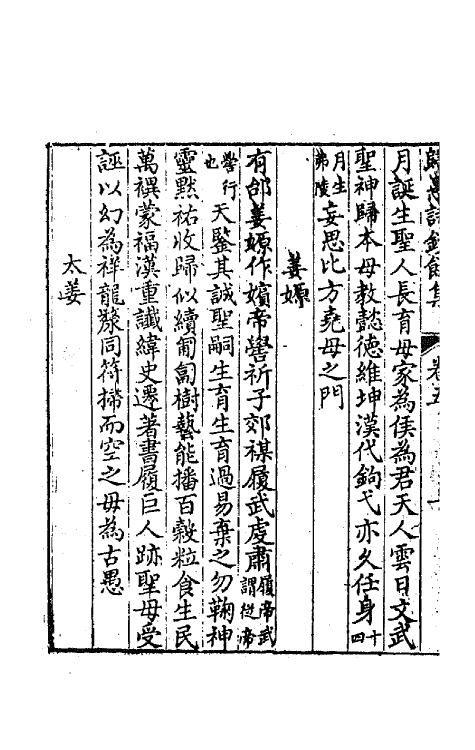 歸愚詩鈔餘集 卷五
月誕生聖人長育母家為侯為君天人雲日文武
聖神歸本母教懿德維坤漢代鉤弋亦久任身十四
月生弗陵妄思比方堯母之門
姜嫄
有邰姜嫄作嬪帝嚳祈子郊禖履武虔肅履帝武謂從帝
嚳行也天鑒其誠聖嗣生育生育過易棄之勿鞠神
靈默祐收歸似續匍匐樹藝能播百穀粒食生民
萬禩蒙福漢重讖緯史遷著書履巨人跡聖母受
誣以幻為祥龍漦同符掃而空之毋為古愚
太姜